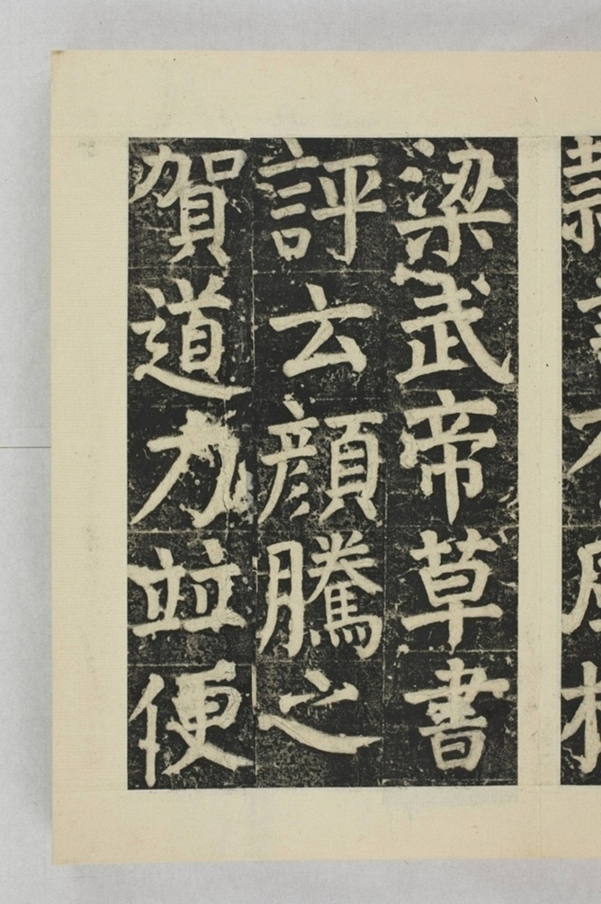 梁武帝草書
評云顔騰之
賀道力並便